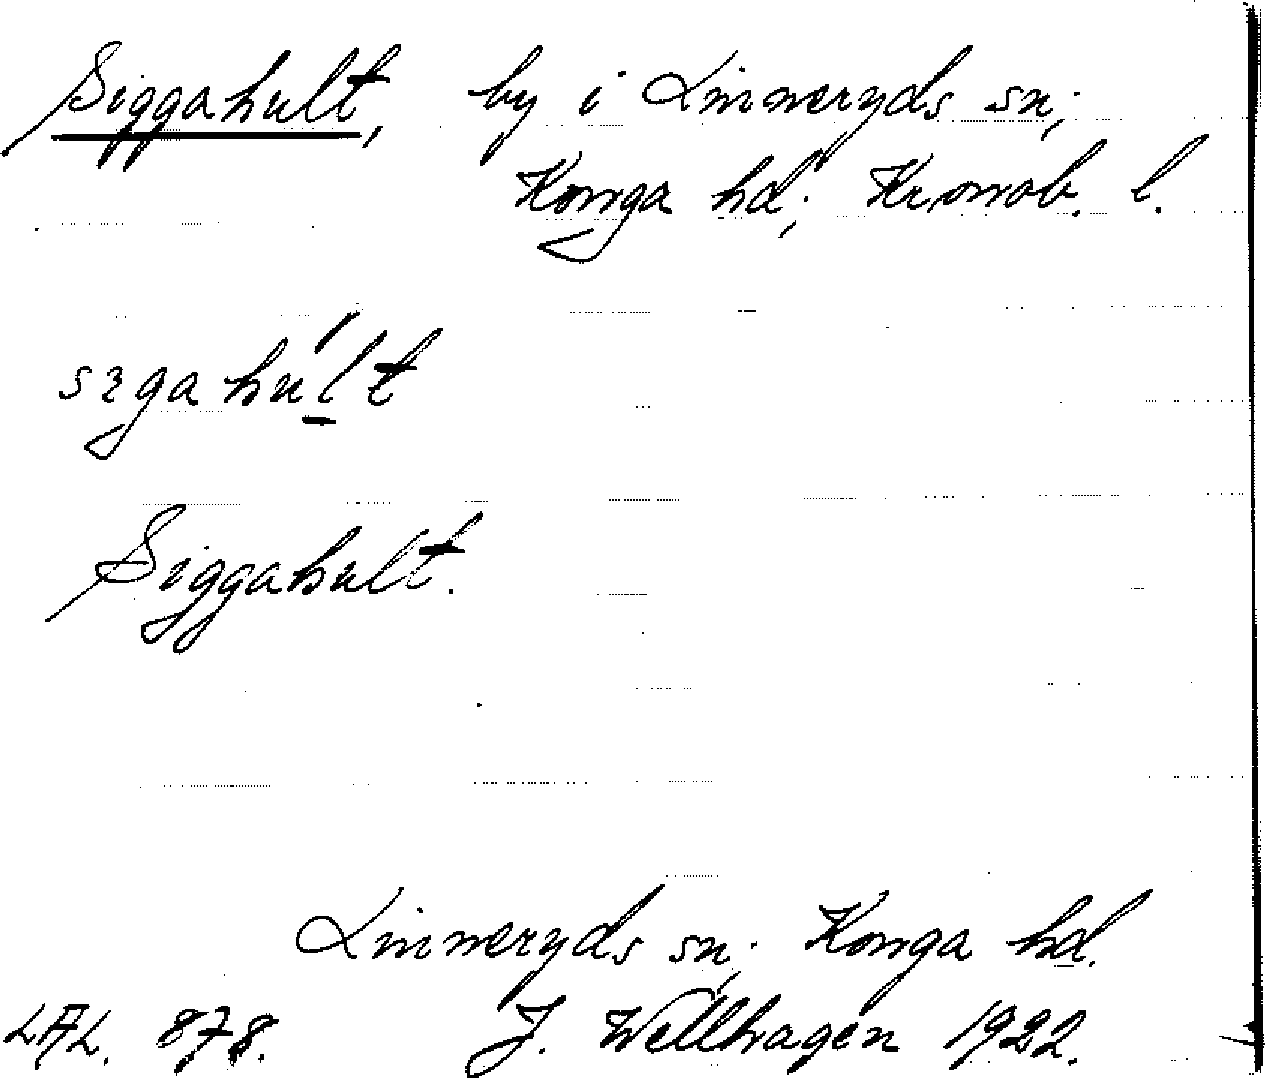 Siggahult, by i Linneryds sn;
Konga hd; Kronob. l.
sɪgahúl̠t
Siggahult.
Linneryds sn; Konga hd.
LAL. 878. J. Wellhagen 1922.